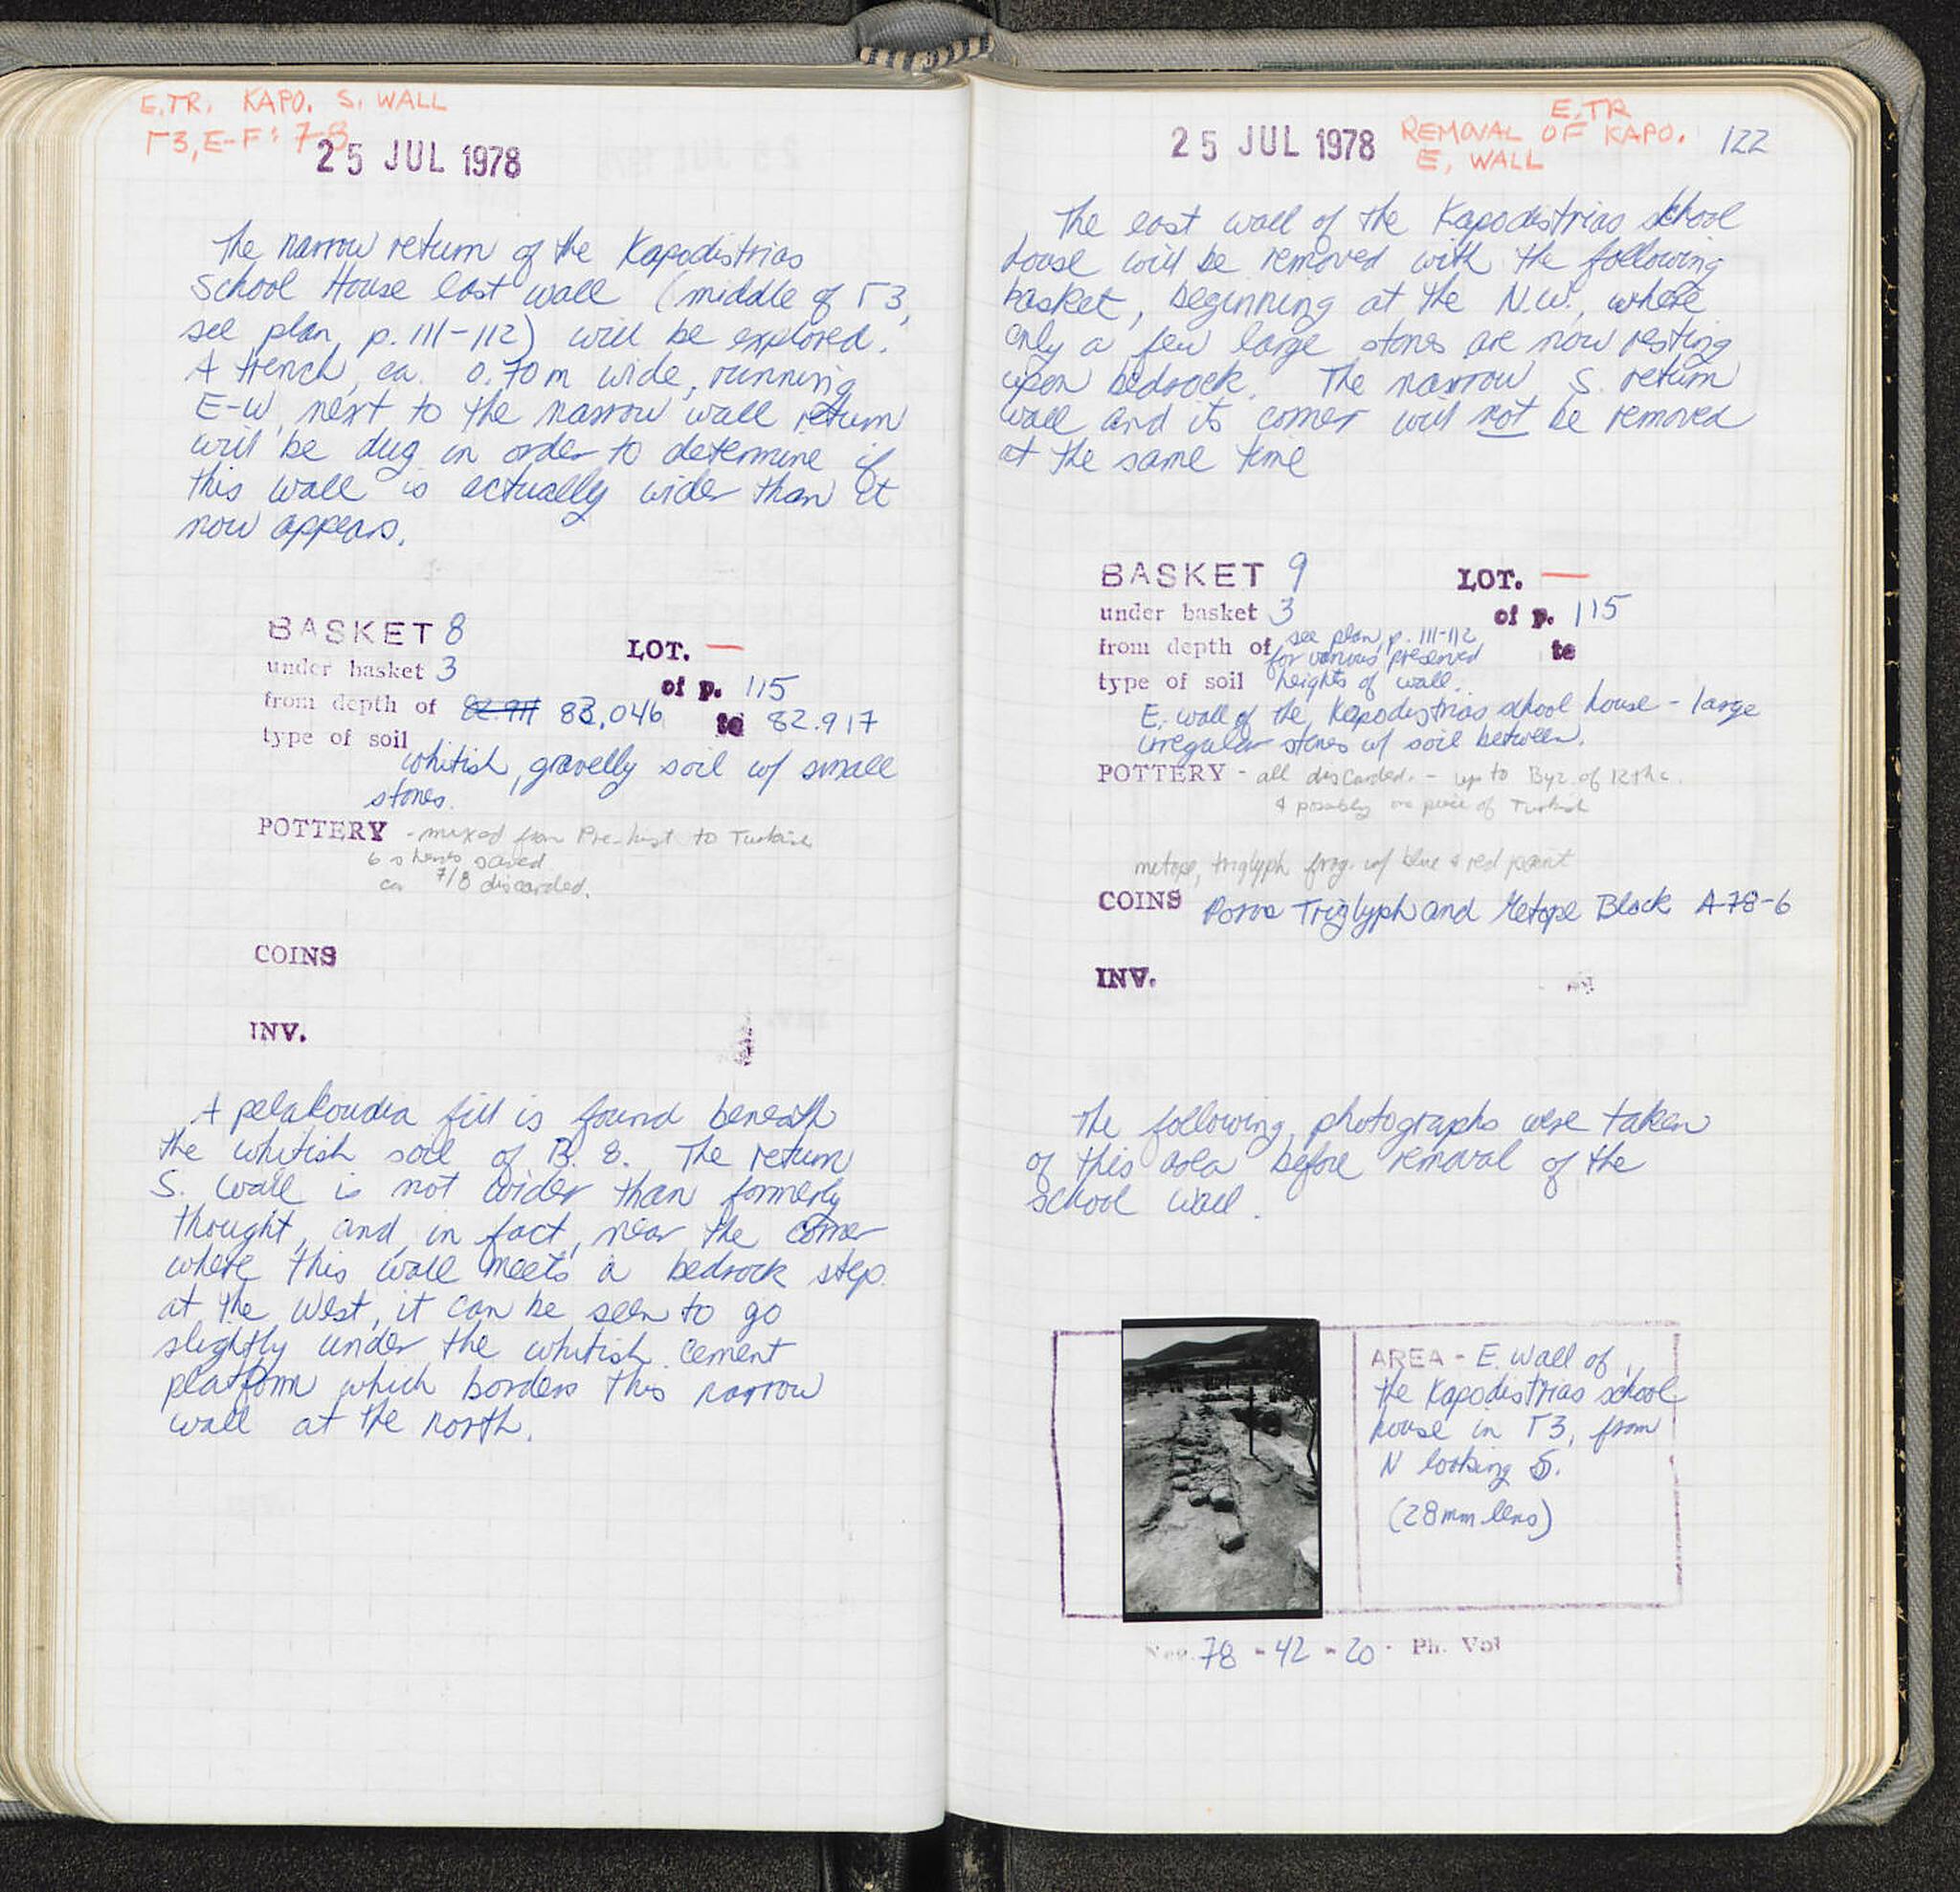 E.TR. KAPO. S. WALL
Γ3, E-F: 7-8
25 JUL 1978
The narrow return of the Kapodistrias
School House east wall (middle of Γ3,
see plan, p. 111-112) will be explored.
A trench, ca. 0.70m wide, running
E-W, next to the narrow wall return
will be dug in order to determine if
this wall is actually wider than it
now appears.
BASKET 8
LOT. —
under basket 3
of p. 115
from depth of 82.911 83.046 to 82.917
type of soil
whitish, gravelly soil w/ small
stones.
POTTERY - mixed from Pre-hist to Turkish
6 sherds saved
ca 7/8 discarded.
COINS
INV.
A pelakoudia fill is found beneath
the whitish soil of B. 8. The return
S. wall is not wider than formerly
thought, and, in fact, near the corner
where this wall meets a bedrock step
at the west, it can be seen to go
slightly under the whitish cement
platform which borders this narrow
wall at the north.
25 JUL 1978
E.TR
REMOVAL OF KAPO.
E. WALL
122
The east wall of the Kapodistrias school
house will be removed with the following
basket, beginning at the N.W., where
only a few large stones are now resting
upon bedrock. The narrow S. return
wall and its corner will not be removed
at the same time
BASKET 9
LOT. —
under basket 3
of p. 115
from depth of see plan, p. 111-112 to
for various preserved
type of soil heights of wall.
E. wall of the Kapodistrias school house - large
irregular stones w/ soil between.
POTTERY - all discarded. - up to Byz. of 12th c.
& possibly one piece of Turkish
metope, triglyph frag. w/ blue & red paint
COINS Poros Triglyph and Metope Block A-78-6
INV.
The following photographs were taken
of this area before removal of the
school wall.
AREA - E. Wall of
the Kapodistrias school
house in Γ3, from
N looking S.
(28mm lens)
Neg. 78 - 42 - 20 · Ph. Vol